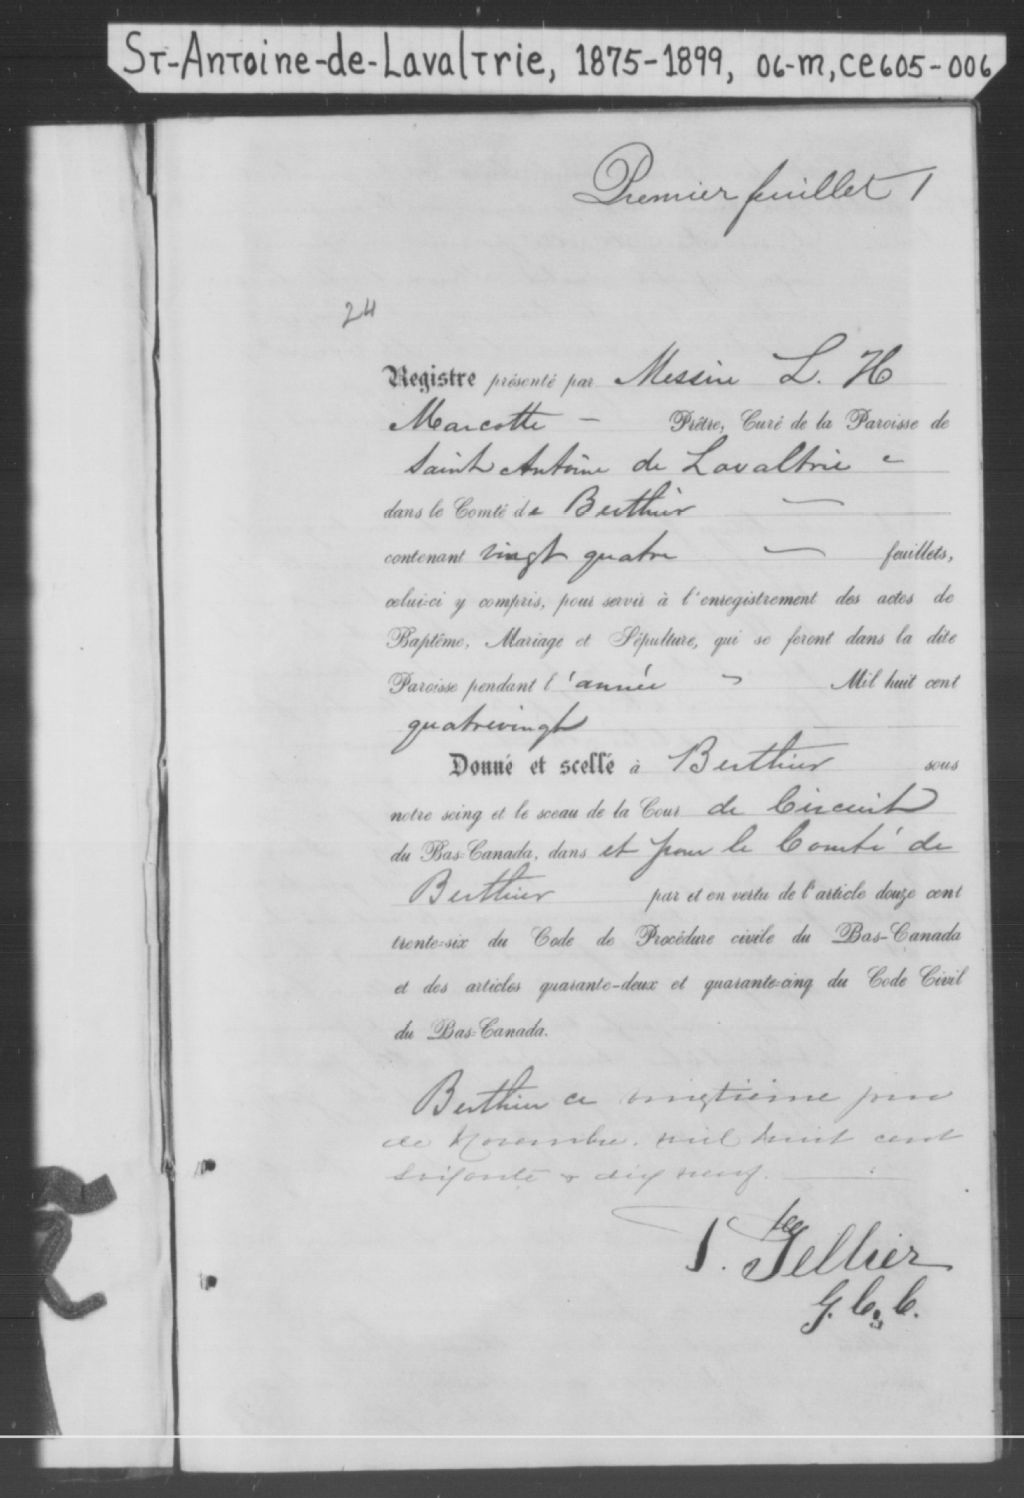 ST-Antoine-de-Lavaltrie, 1875-1899, 06-M, CE605-006
Premier feuillet 1
24
Registre présenté par Messire L. H
Marcotte — Prêtre, Curé de la Paroisse de
Saint Antoine de Lavaltrie -
dans le Comté de Berthier —
contenant vingt quatre — feuillets,
celui-ci y compris, pour servir à l'enregistrement des actes de
Baptême, Mariage et Sépulture, qui se feront dans la dite
Paroisse pendant l'année - Mil huit cent
quatrevingt
Donné et scellé à Berthier sous
notre seing et le sceau de la Cour de Circuit
du Bas-Canada, dans et pour le Comté de
Berthier par et en vertu de l'article douze cent
trente-six du Code de Procédure civile du Bas-Canada
et des articles quarante-deux et quarante-cinq du Code Civil
du Bas-Canada.
Berthier ce vingtieme jour
de Novembre. mil huit cent
soixante & dix neuf. —
Tellier
G. C. C.